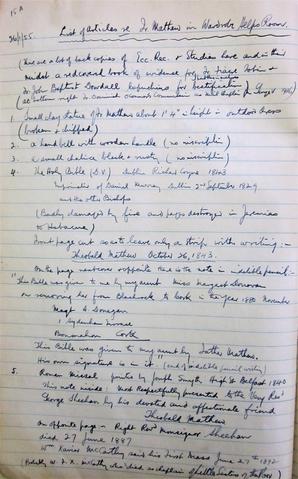 15A
26/1/55
List of articles re Fr Mathew in Wardrobe, Helps Room.
There are a lot of back copies of Ecc. Rec. & Studies here and in their
midst a red covered book of evidence for
Fr John Baptist
1. Small clay statue of Fr Mathew about 1' 4" in height in outdoor dress
(broken & chipped)
2. a hand bell with wooden handle (no inscription)
3. a small black & rusty (no inscription)
4. The Holy Bible (D.V.) Dublin Richard Coyne
of Daniel Murray Dublin 2nd September 1829
and the other Bishops
(Badly damaged by fire and pages destroyed in Jeremias
to
Front page cut so as to leave only a strip with writing :-
Theobald Mathew October 26, 1843.
On the page next over opposite there is the note in indelible pencil:-
"This Bible was given to me by my aunt Miss Margaret Donovan
on removing her from Blackrock to Cork in the year 1880 November
Magt A Donegan
1 Sydenham Terrace
Cork
This Bible was given to my aunt by Father Mathew.
His own signature is in it. (end of indelible pencil writing)
5. Roman Missal printed by Joseph Smyth High St Belfast 1840
This note inside: Most Respectfully presented to the Very Revd
George Sheehan by his devoted and affectionate friend
Theobald Mathew
On opposite page - Right Revd Monsignor Sheehan
died 27 June 1887
Wm Xavier McCarthy said his First Mass June 24th 1892
(Probably W. F. X. McCarthy who died as chaplain of Little Sisters of the Poor)